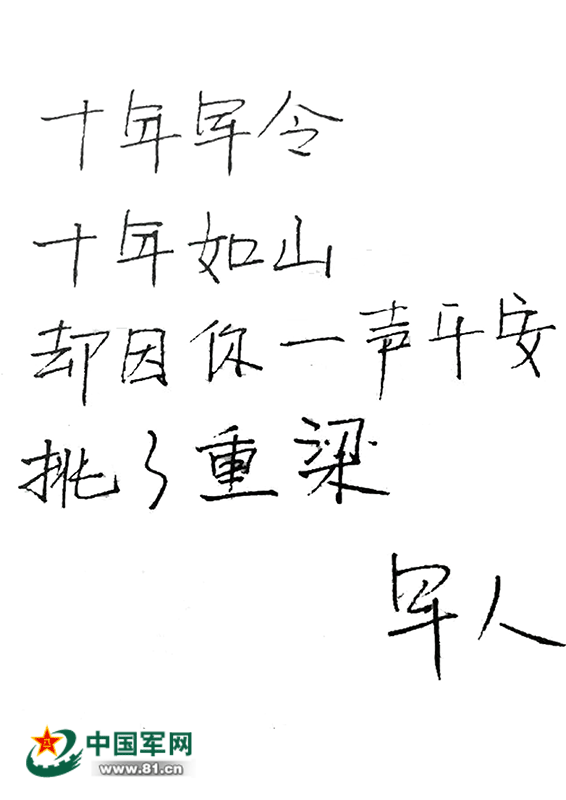 十年军令
十年如山
却因你一声平安
挑了重梁
军人
中国军网
www.81.cn